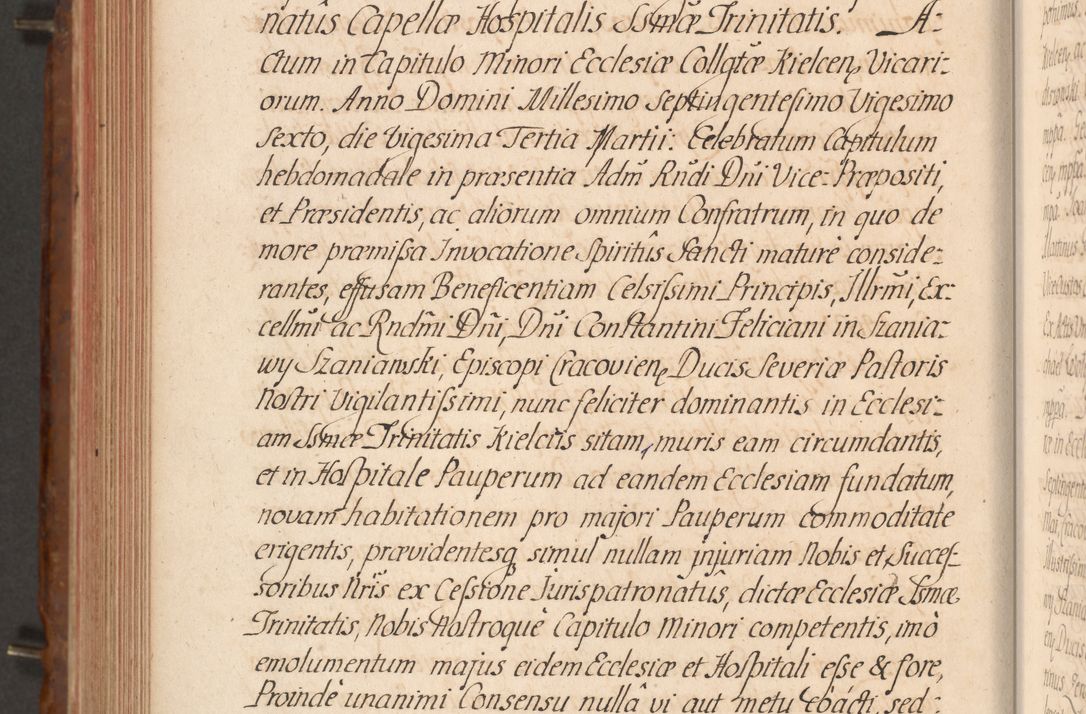 natûs Capellæ Hospitalis Ssmæ Trinitatis. A-
ctum in Capitulo Minori Ecclesiæ Collgtæ Kielcen, Vicari-
orum. Anno Domini Millesimo Septingentesimo Vigesimo
Sexto, die vigesima Tertia Martii: Celebratum Capitulum
hebdomadale in præsentia Adm̃ Rñdi Dñi Vice-Præpositi,
et Præsidentis, ac aliorum omnium Confratrum, in quo de
more præmissa Invocatione Spiritûs Sancti maturè conside-
rantes, effusam Beneficentiam Celsissimi Principis, Illrm̃i, Ex-
cellm̃i ac Rndm̃i Dñi, Dñi Constantini Feliciani in Szania-
wy Szaniawski, Episcopi Cracovien, Ducis Severiæ Pastoris
Nostri Vigilantissimi, nunc feliciter dominantis in Ecclesi-
am Ssmæ Trinitatis Kielciis sitam, muris eam circumdantis,
et in Hospitale Pauperum ad eandem Ecclesiam fundatum,
novam habitationem pro majori Pauperum commoditate
erigentis, prævidentesq simul nullam injuriam Nobis et Succes-
soribus Nrĩs ex Cessione Jurispatronâtûs, dictæ Ecclesiæ Ssmæ
Trinitatis, Nobis Nostroquè Capitulo Minori competentis, imò
emolumentum majus eidem Ecclesiæ et Hospitali esse & fore,
Proindè unanimi Consensu nullâ vi aut metu coácti, sed-